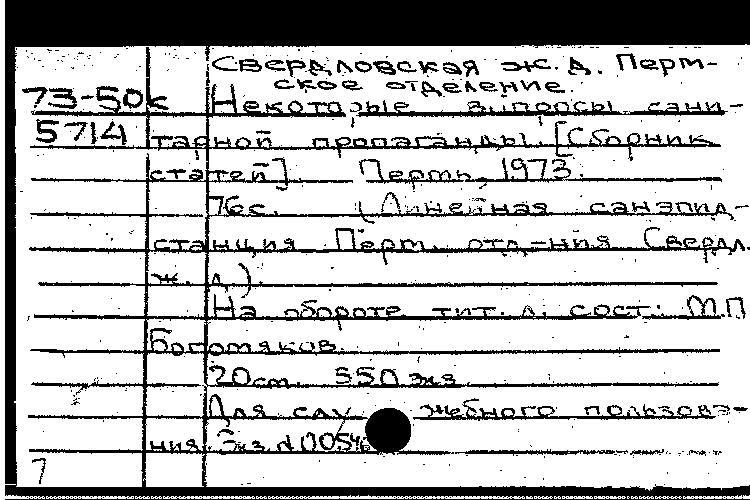 Свердловская ж. д. Перм-
ское отделение.
73-50к Некоторые вопросы сани-
5714 тарной пропаганды. [Сборник
статей]. Пермь, 1973.
76с. (Линейная санэпид-
станция Перм. отд-ния Свердл.
ж. д.).
На обороте тит. л. сост.: М.П.
Богомяков.
20см. 550 экз.
Для служебного пользова-
ния. Экз. N
7